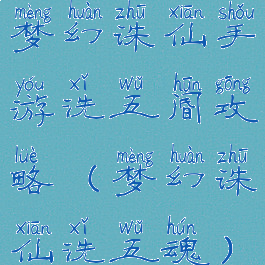 mèng huàn zhū xiān shǒu
梦幻诛仙手
yóu xǐ wǔ hūn gōng
游洗五阍攻
lüè mèng huàn zhū
略（梦幻诛
xiān xǐ wǔ hún
仙洗五魂）